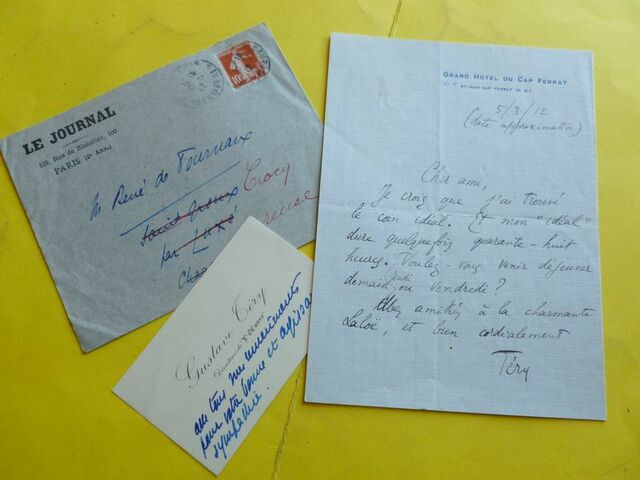 LE JOURNAL
100, Rue de Richelieu, 100
PARIS (2e Arr.)
M René de Tournaux
Crocq
Creuse
par
10
Gustave Téry
avec tous mes remerciements
pour votre bonne et
sympathie.
GRAND HOTEL DU CAP FERRAT
ST JEAN CAP FERRAT (A. M.)
5/3/12
(date approximative)
Cher ami,
Je crois que j'ai trouvé
le coin idéal. Et mon "idéal"
dure quelquefois quarante-huit
heures. Voulez-vous venir déjeuner
demain jeudi ou vendredi?
Mes amitiés à la charmante
Laloë, et bien cordialement
Téry